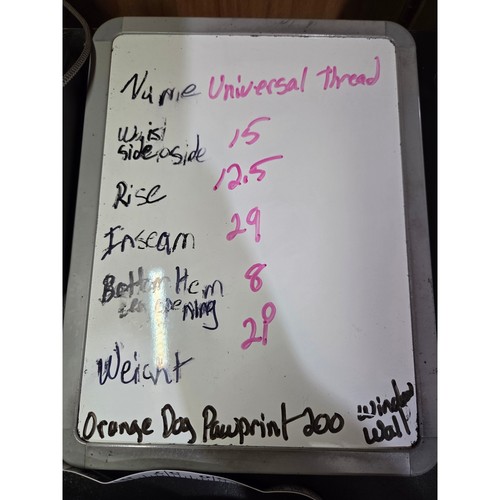 Name Universal Thread
Waist 15
side to side
Rise 12.5
Inseam 29
Bottom Hem 8
opening
Weight 2P
Orange Dog Pawprint 200 window
Wall